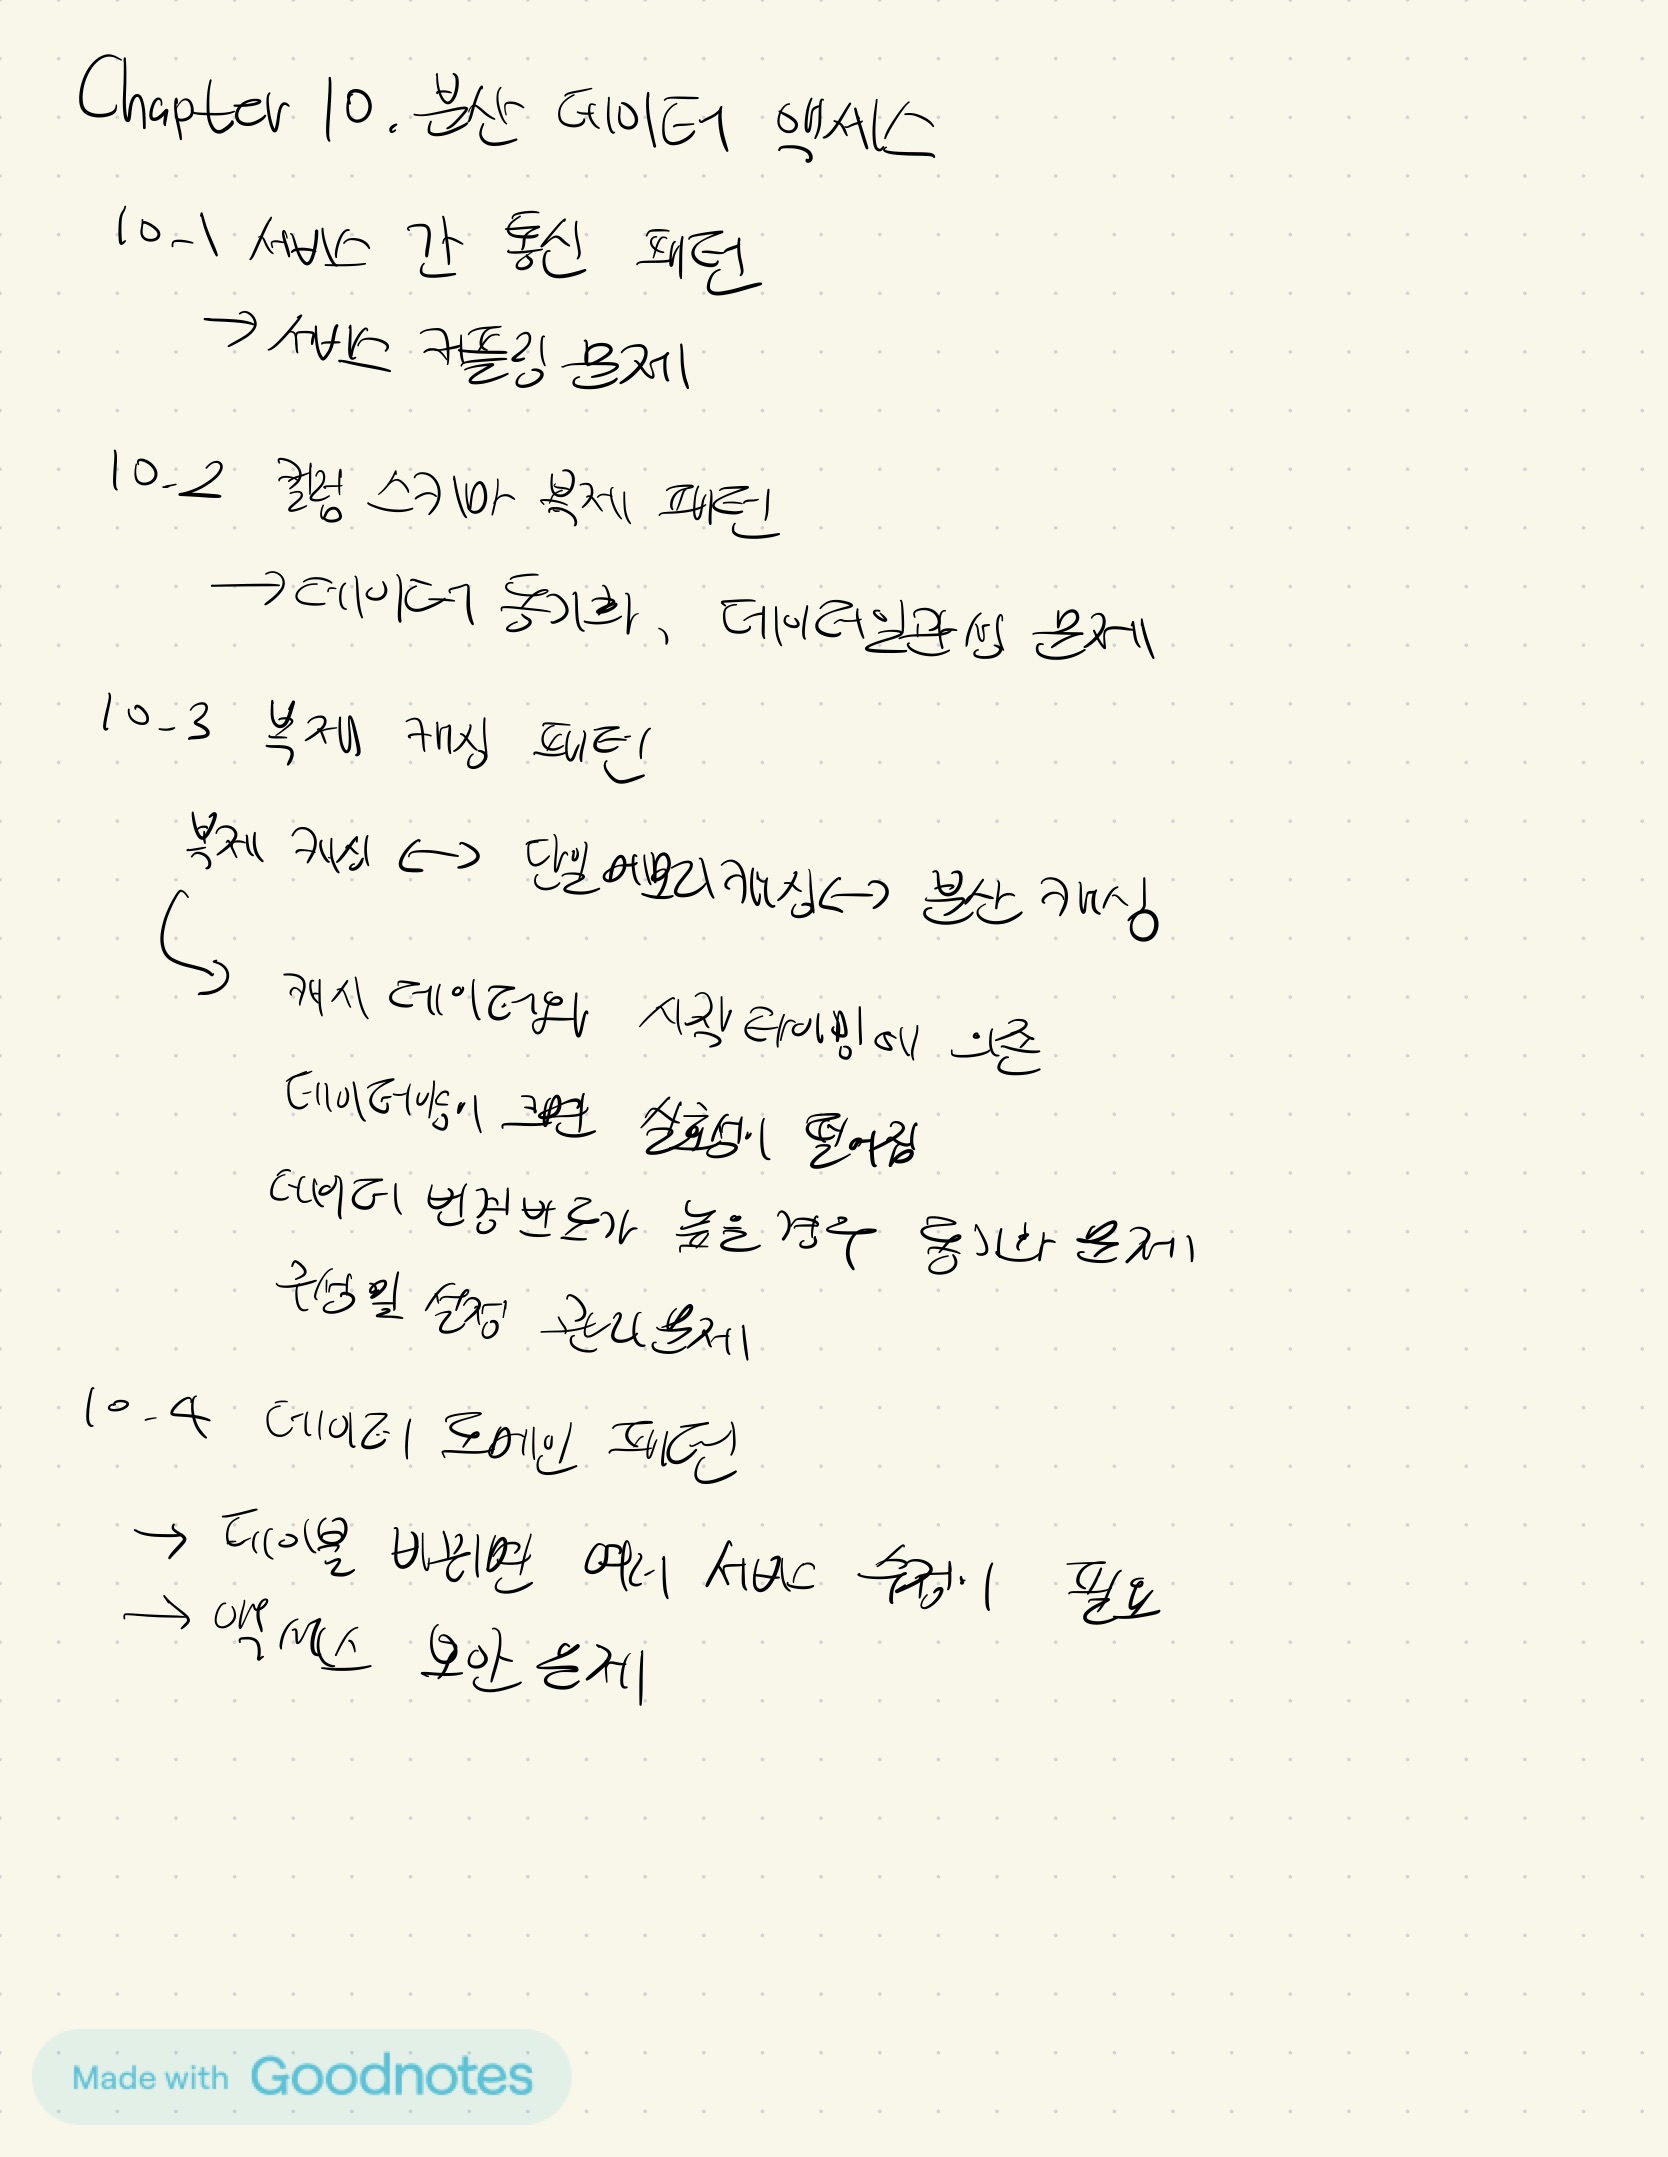 Chapter 10. 분산 데이터 액세스
10-1 서비스 간 통신 패턴
→ 서비스 커플링 문제
10-2 컬럼 스키마 복제 패턴
→ 데이터 동기화, 데이터일관성 문제
10-3 복제 캐싱 패턴
복제 캐싱 <-> 단일메모리캐싱 <-> 분산 캐싱
캐시 데이터와 시작타이밍에 의존
데이터양이 크면 실효성이 떨어짐
데이터 변경빈도가 높을 경우 동기화 문제
구성 및 설정 관리문제
10-4 데이터 도메인 패턴
→ 테이블 바뀌면 여러 서비스 수정이 필요
→ 액세스 보안 문제
Made with Goodnotes